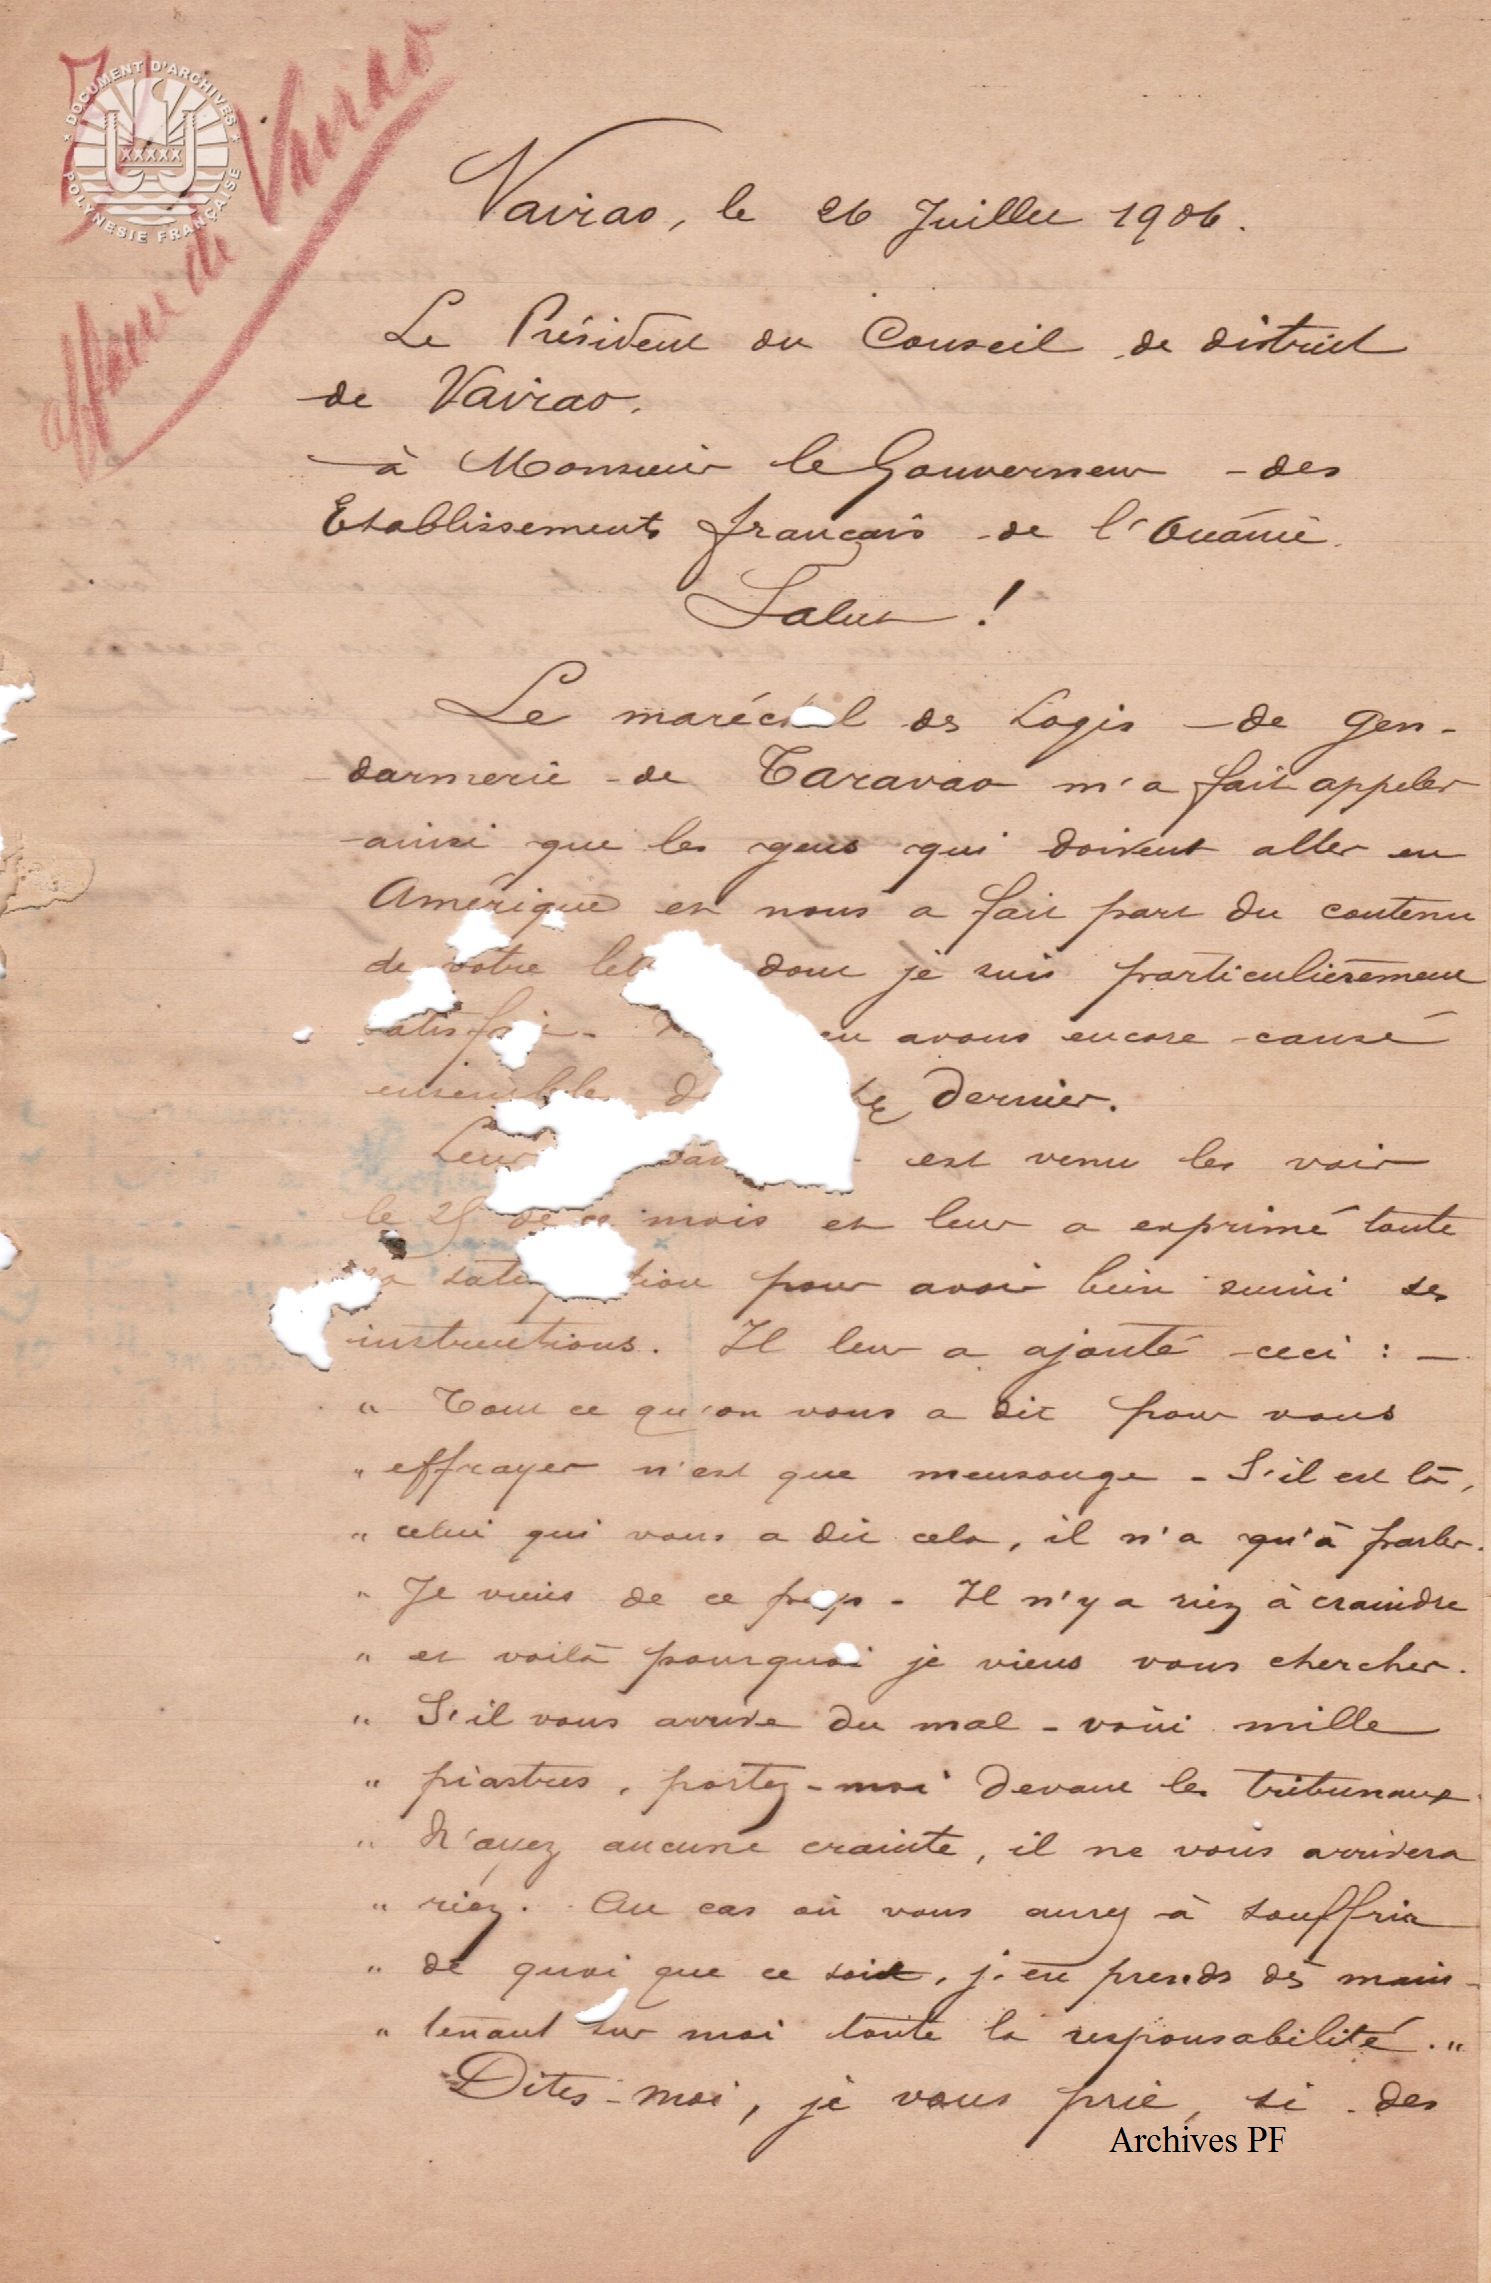 DOCUMENT D'ARCHIVES
POLYNESIE FRANÇAISE
affaire de Vairao
Vairao, le 26 Juillet 1906.
Le Président du Conseil de district
de Vairao.
à Monsieur le Gouverneur des
Etablissements français de l'Océanie.
Salut !
Le maréchal des Logis de Gen-
darmerie de Taravao m'a fait appeler
ainsi que les gens qui doivent aller en
Amérique et nous a fait part du contenu
de votre dont je suis particulièrement
satisfait. en avons encore causé
ensemble dernier.
Leur est venu les voir
le 25 de ce mois et leur a exprimé toute
sa satisfaction pour avoir bien suivi ses
instructions. Il leur a ajouté ceci : —
" Tout ce qu'on vous a dit pour vous
" effrayer n'est que mensonge - S'il est là,
" celui qui vous a dit cela, il n'a qu'à parler.
" Je viens de ce pays - Il n'y a rien à craindre
" et voilà pourquoi je viens vous chercher.
" S'il vous arrive du mal - voici mille
" piastres, portez-moi devant les tribunaux.
" N'ayez aucune crainte, il ne vous arrivera
" rien. Au cas où vous aurez à souffrir
" de quoi que ce soit, j'en prends dès main-
" tenant sur moi toute la responsabilité. "
Dites-moi, je vous prie, si des
Archives PF